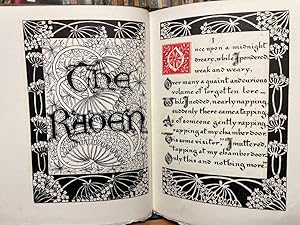 The
Raven
I
Once upon a midnight
dreary, while I pondered
weak and weary,
Over many a quaint and curious
volume of forgotten lore—
While I nodded, nearly napping,
suddenly there came a tapping
As of someone gently rapping
rapping at my chamber door.
"Tis some visitor," I muttered,
tapping at my chamber door.
Only this and nothing more.